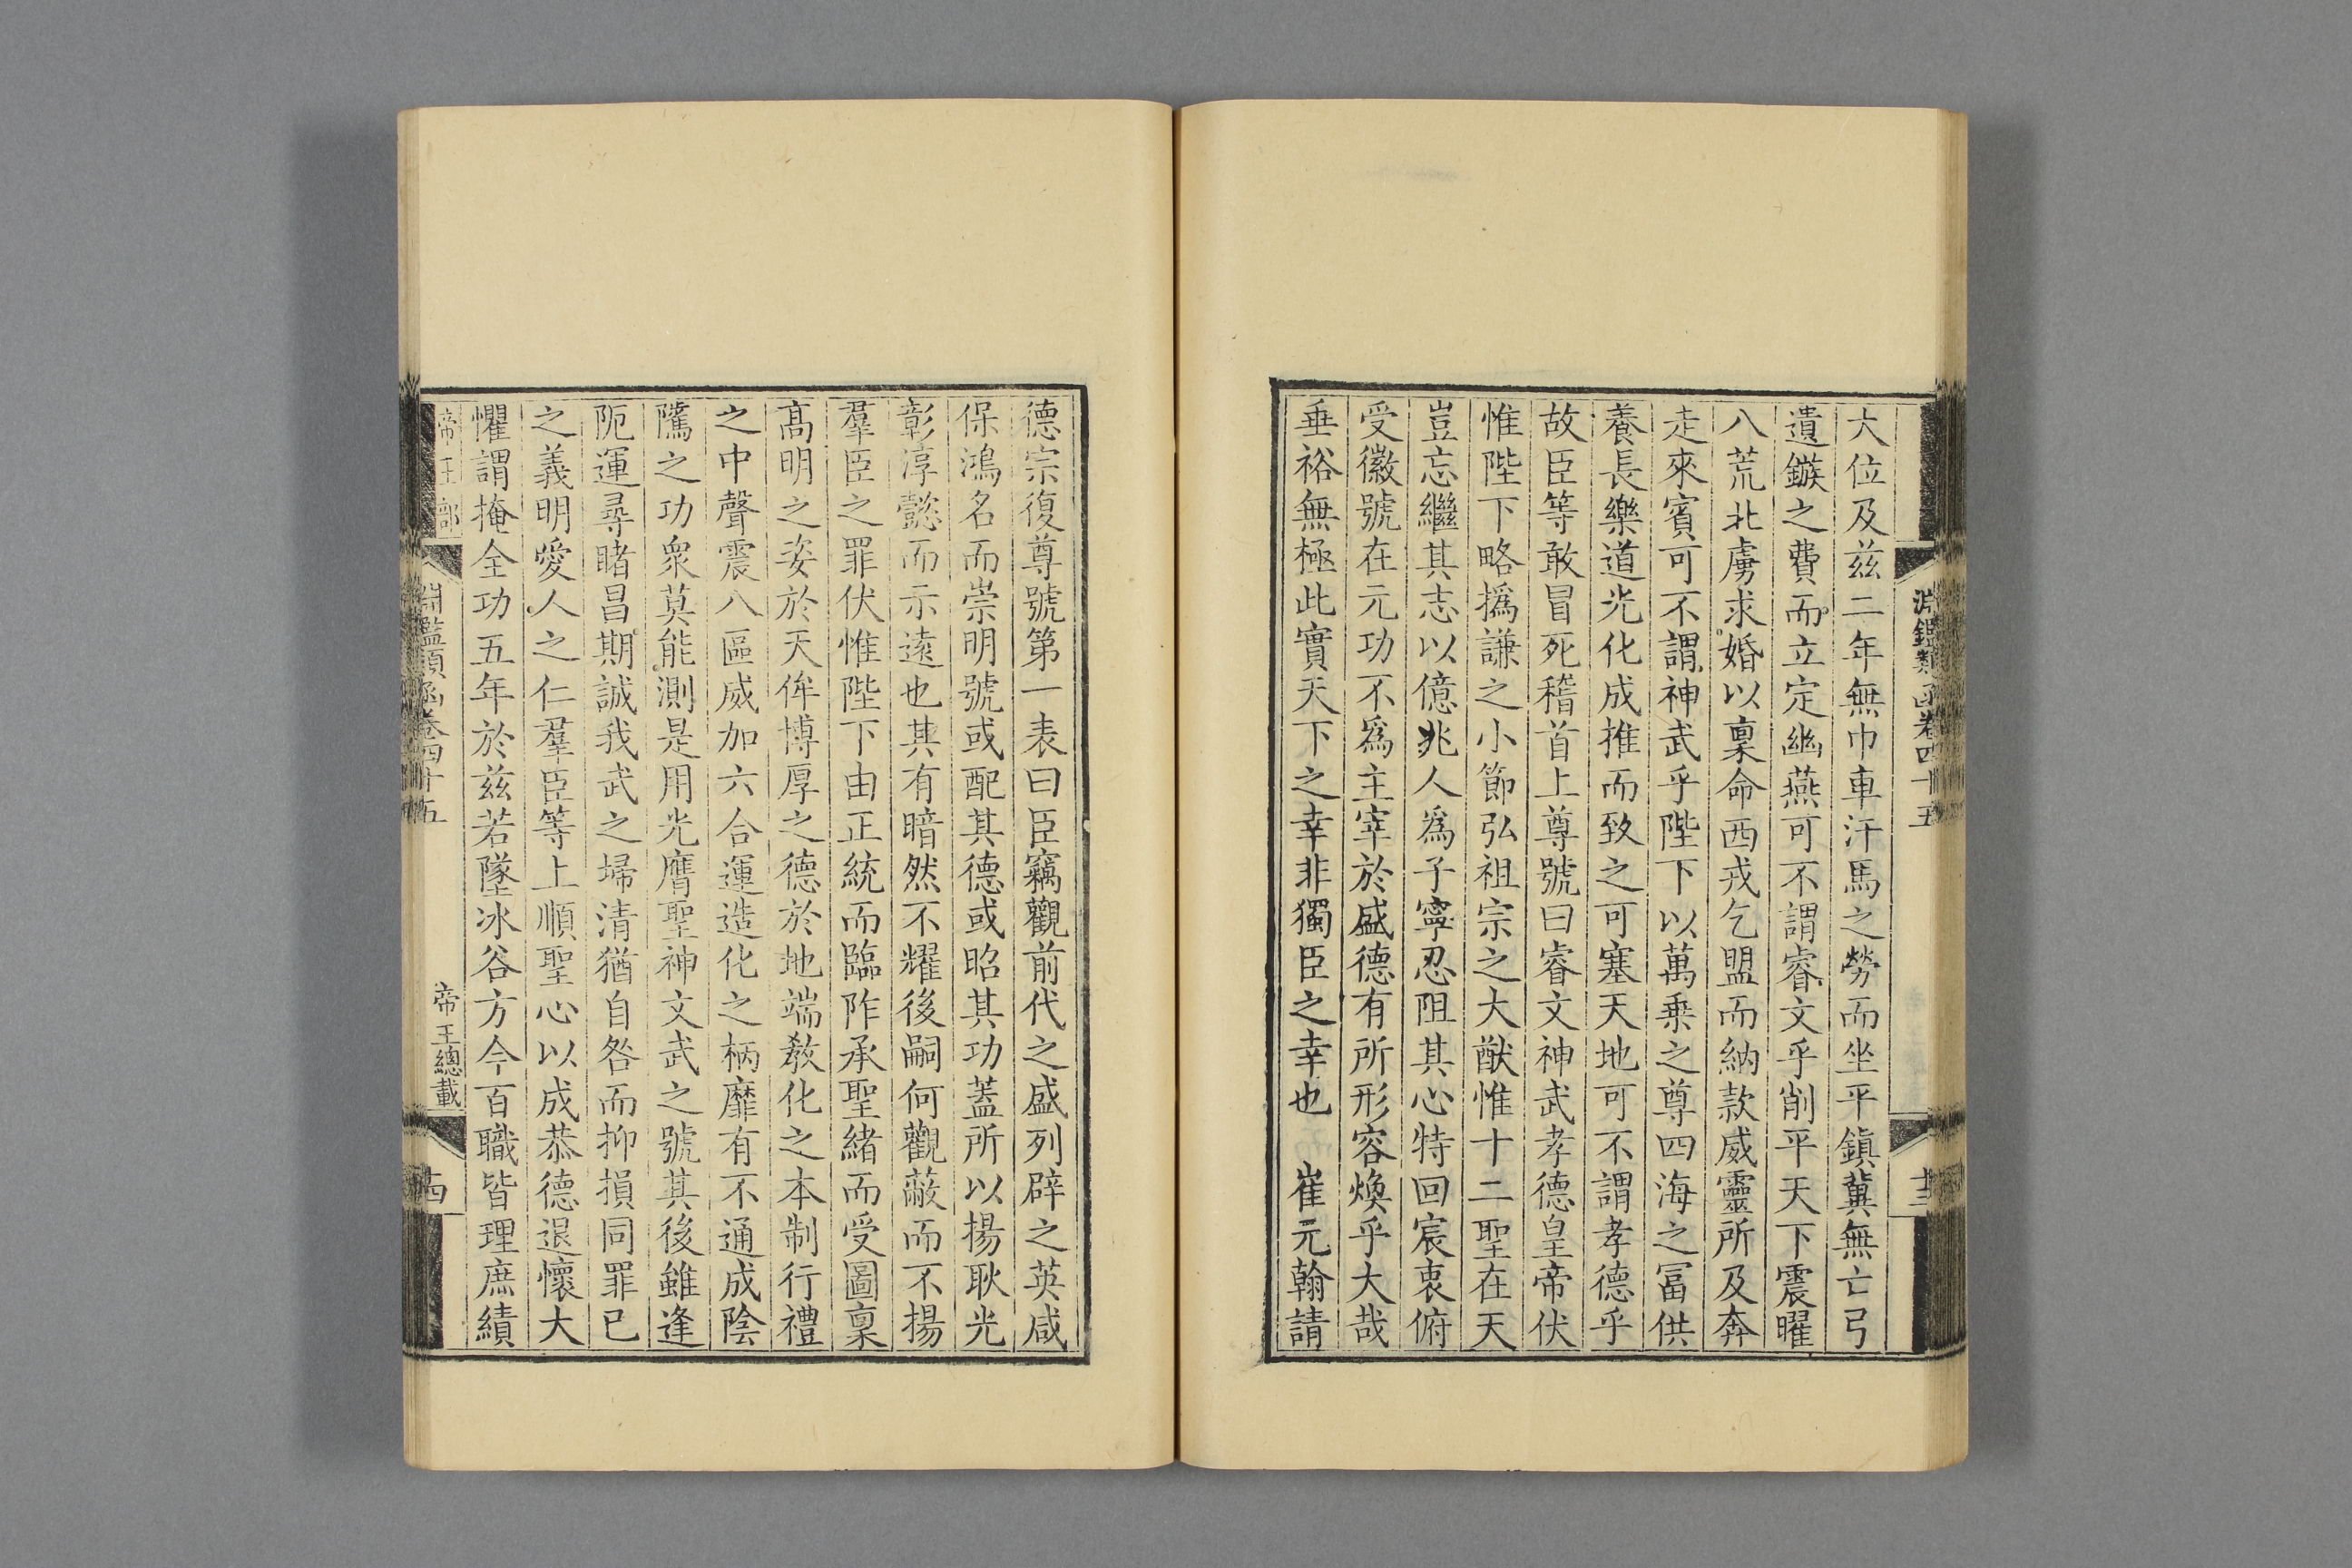 淵鑑類函卷四十五
十三
大位及茲二年無巾車汗馬之勞而坐平鎮冀無亡弓
遺鏃之費而立定幽燕可不謂睿文乎削平天下震曜
八荒北虜求婚以稟命西戎乞盟而納款威靈所及奔
走來賓可不謂神武乎陛下以萬乗之尊四海之冨供
養長樂道光化成推而致之可塞天地可不謂孝德乎
故臣等敢冒死稽首上尊號曰睿文神武孝德皇帝伏
惟陛下略撝謙之小節弘祖宗之大猷惟十二聖在天
豈忘繼其志以億兆人爲子寧忍阻其心特回宸衷俯
受徽號在元功不爲主宰於盛德有所形容煥乎大哉
垂裕無極此實天下之幸非獨臣之幸也　崔元翰請
德宗復尊號第一表曰臣竊觀前代之盛列辟之英咸
保鴻名而崇明號或配其德或昭其功蓋所以揚耿光
彰淳懿而示遠也其有暗然不耀後嗣何觀蔽而不揚
羣臣之罪伏惟陛下由正統而臨阼承聖緒而受圖稟
髙明之姿於天侔博厚之德於地端教化之本制行禮
之中聲震八區威加六合運造化之柄靡有不通成陰
隲之功衆莫能測是用光膺聖神文武之號其後雖逢
阨運尋睹昌期誠我武之埽清猶自咎而抑損同罪已
之義明愛人之仁羣臣等上順聖心以成恭德退懷大
懼謂掩全功五年於茲若墜冰谷方今百職皆理庶績
帝王部
淵鑑類函卷四十五
帝王總載
十四